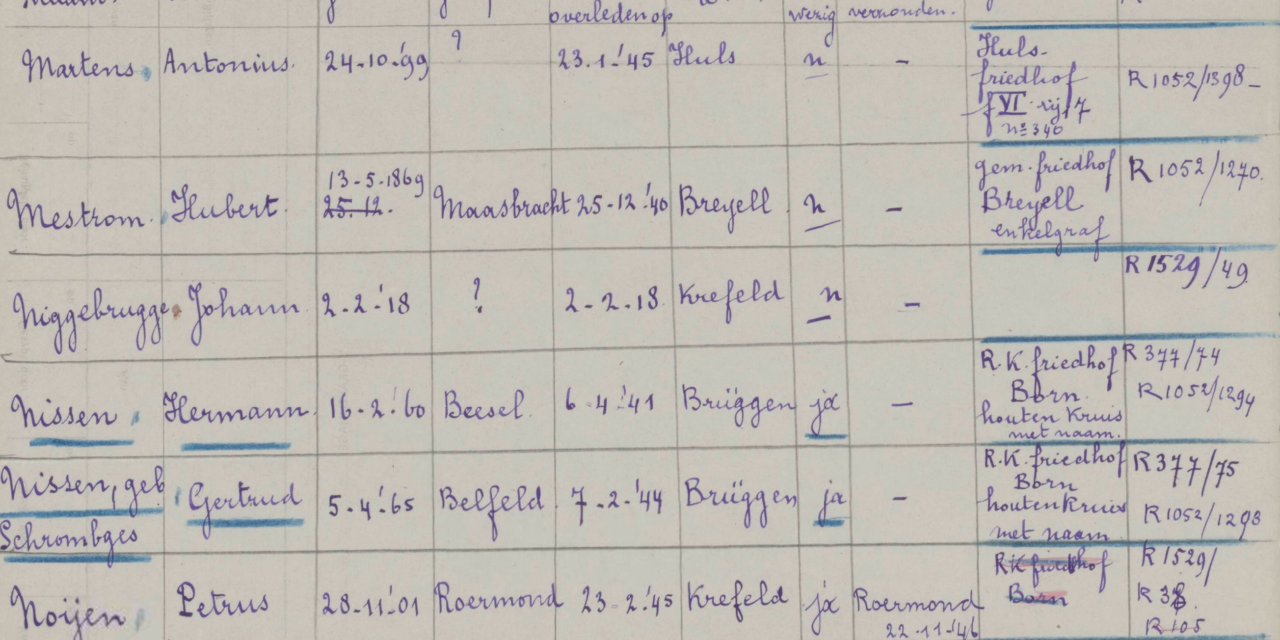 overleden op
werig verzonden.
Martens. Antonius. 24-10-'99 ? 23.1-'45 Huls n - Huls-
friedhof
f VI rij 17
nº 346
R1052/1398-
Mestrom. Hubert. 13-5-1869
25-12.
Maasbracht 25-12-'40 Breyell n - gem. friedhof
Breyell
enkelgraf
R 1052/1270.
Niggebrugge. Johann. 2-2-'18 ? 2-2-18 Krefeld n - R 1529/49
Nissen. Hermann. 16-2-'60 Beesel. 6-4-'41 Brüggen ja - R.K. friedhof
Born.
houten Kruis
met naam.
R 377/74
R1052/1294
Nissen, geb
Schrombges
Gertrud 5-4-'65 Belfeld 7-2-'44 Brüggen ja - R.K. friedhof
Born
houten Kruis
met naam
R377/75
R1052/1298
Noijen Petrus 28-11-'01 Roermond 23-2-'45 Krefeld ja Roermond
22-11-'46
RK friedhof
Born
R 1529/
R 38.
R 105